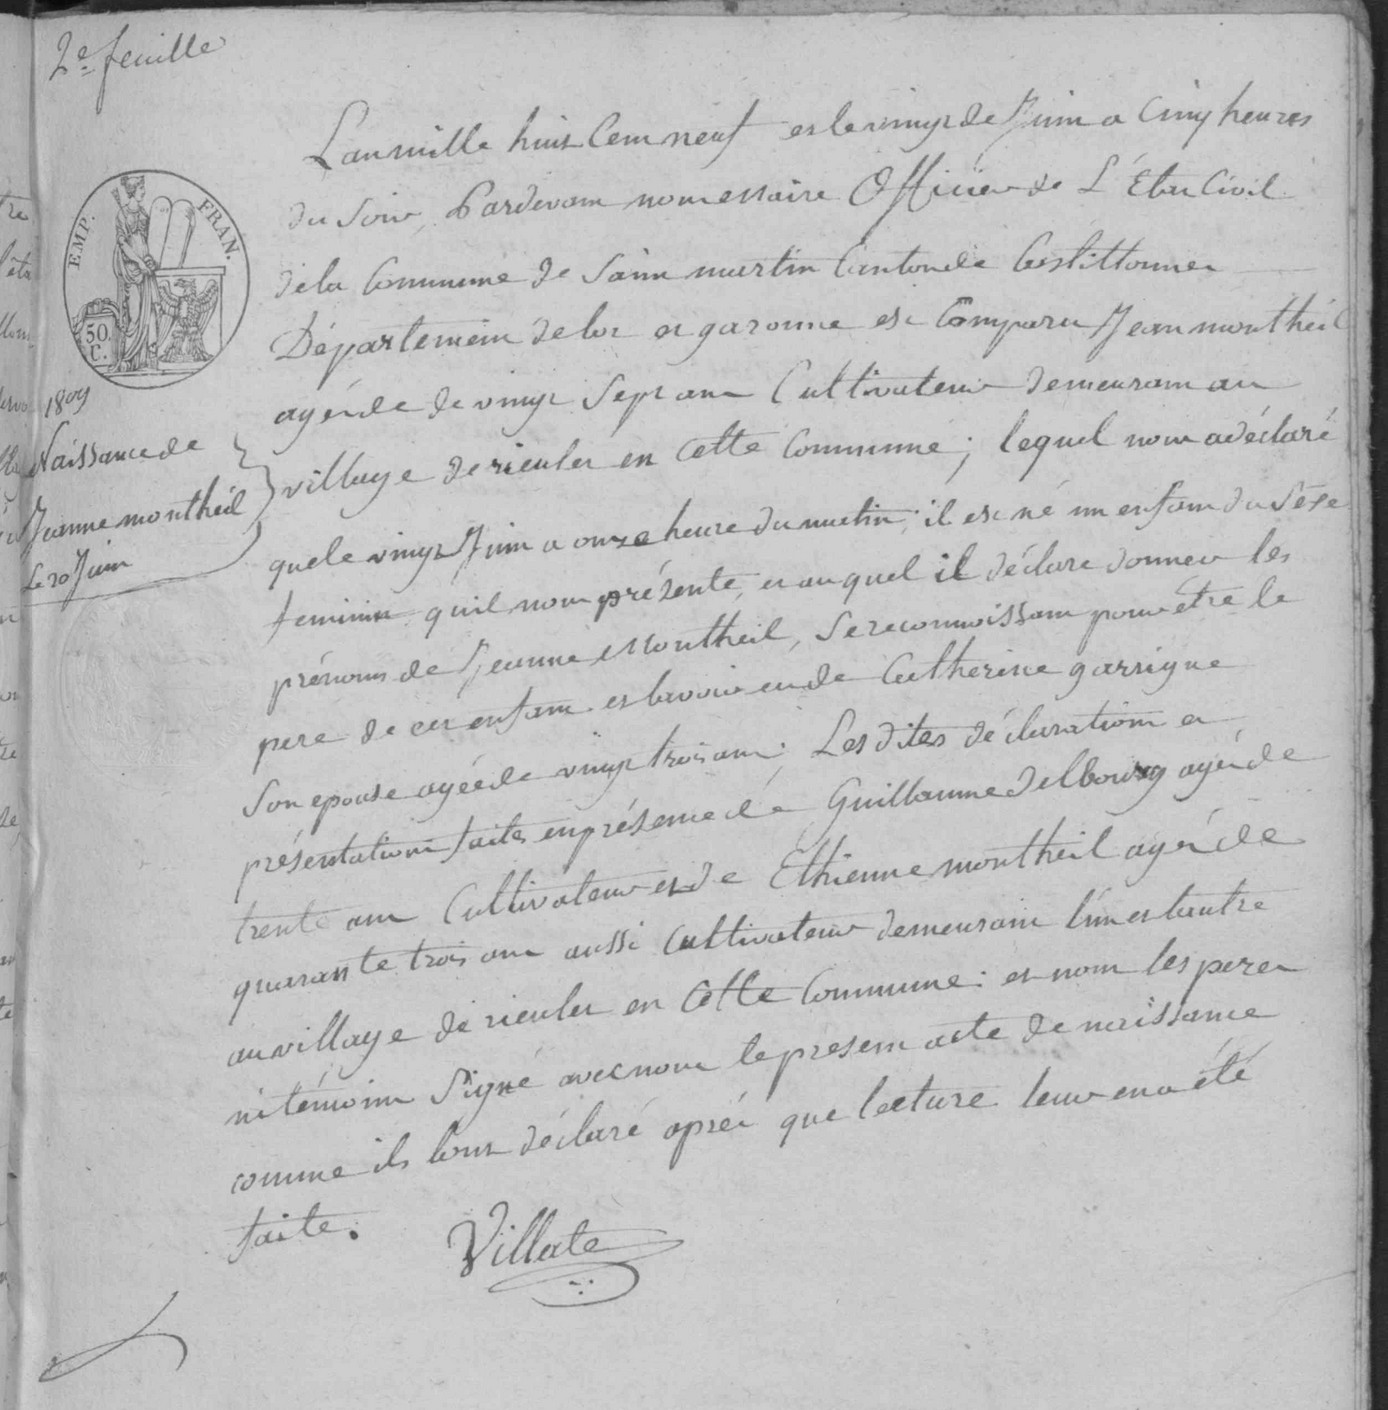 2e feuille
EMP. FRAN.
50. C.
1809
Naissance de
Jeanne montheil
Le 20 Juin
L'an mille huit Cent neuf et le vingt de Juin a Cinq heures
du Soir, Pardevant nous maire Officier de L'État Civil
de la Commune de Saint martin Canton de Castillonnes
Département de lot et garonne est Comparu Jean montheil
agé de de vingt Sept ans Cultivateur demeurant au
village de rieules en Cette Commune; lequel nous a déclaré
que le vingt Juin a onze heure du matin; il est né un enfant du Séxe
feminin quil nous présente, et auquel il déclare donner les
prénoms de Jeanne Montheil, Se reconnoissant pour être le
pere de cet enfant et lavoir eu de Catherine garrigue
Son epouse agée de vingt trois ans; Les dites déclaration et
présentation faites en présence de Guillaume Delbourg agé de
trente ans Cultivateur et de Ethienne montheil agé de
quarante trois ans aussi Cultivateur demeurant l'un et lautre
au village de rieules en Cette Commune: et nont les peres
ni témoins Signé avec nous le présent acte de naissance
comme ils lont déclaré aprés que lecture leur en a été
faite.
Villate